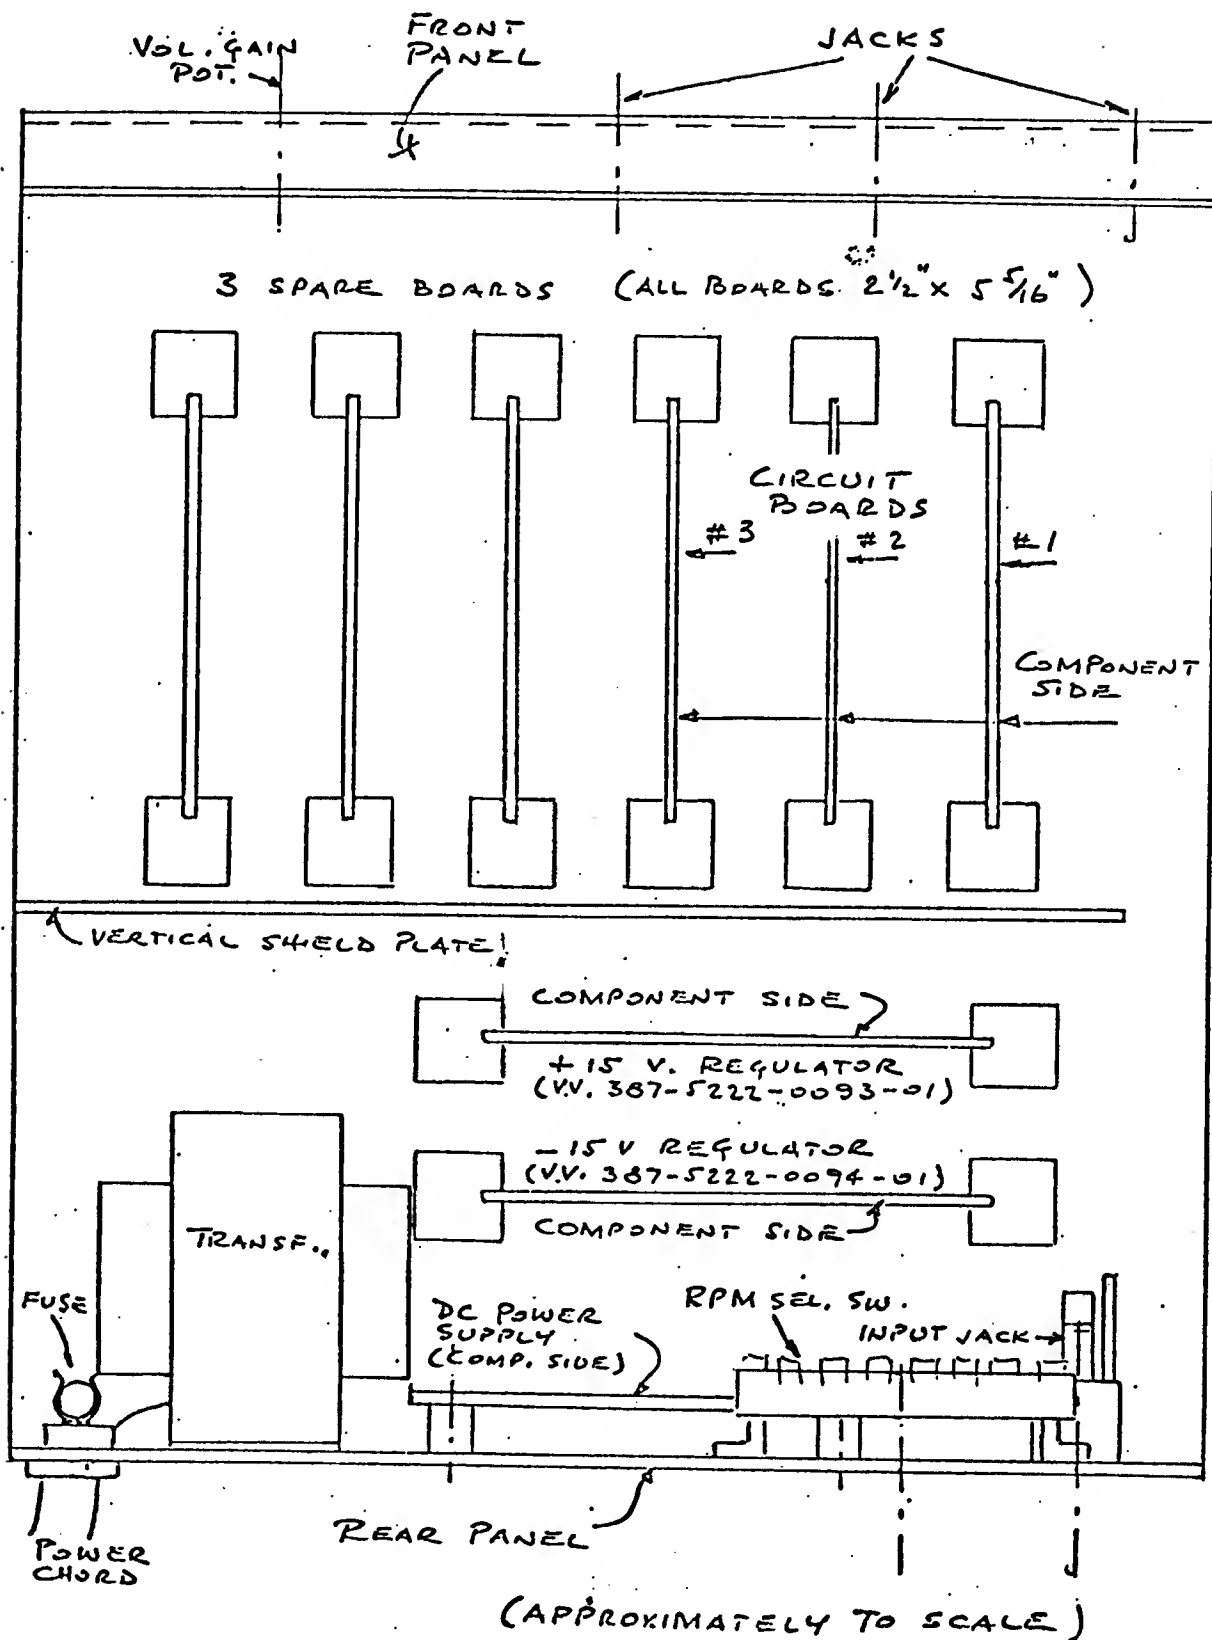 VOL. GAIN
POT.
FRONT
PANEL
JACKS
3 SPARE BOARDS (ALL BOARDS. 2 1/2" x 5 5/16")
CIRCUIT
BOARDS
#3
#2
#1
COMPONENT
SIDE
VERTICAL SHIELD PLATE
COMPONENT SIDE
+15 V. REGULATOR
(V.V. 387-5222-0093-01)
-15 V REGULATOR
(V.V. 387-5222-0094-01)
COMPONENT SIDE
TRANSF.
FUSE
DC POWER
SUPPLY
(COMP. SIDE)
RPM SEL. SW.
INPUT JACK
REAR PANEL
POWER
CHORD
(APPROXIMATELY TO SCALE)